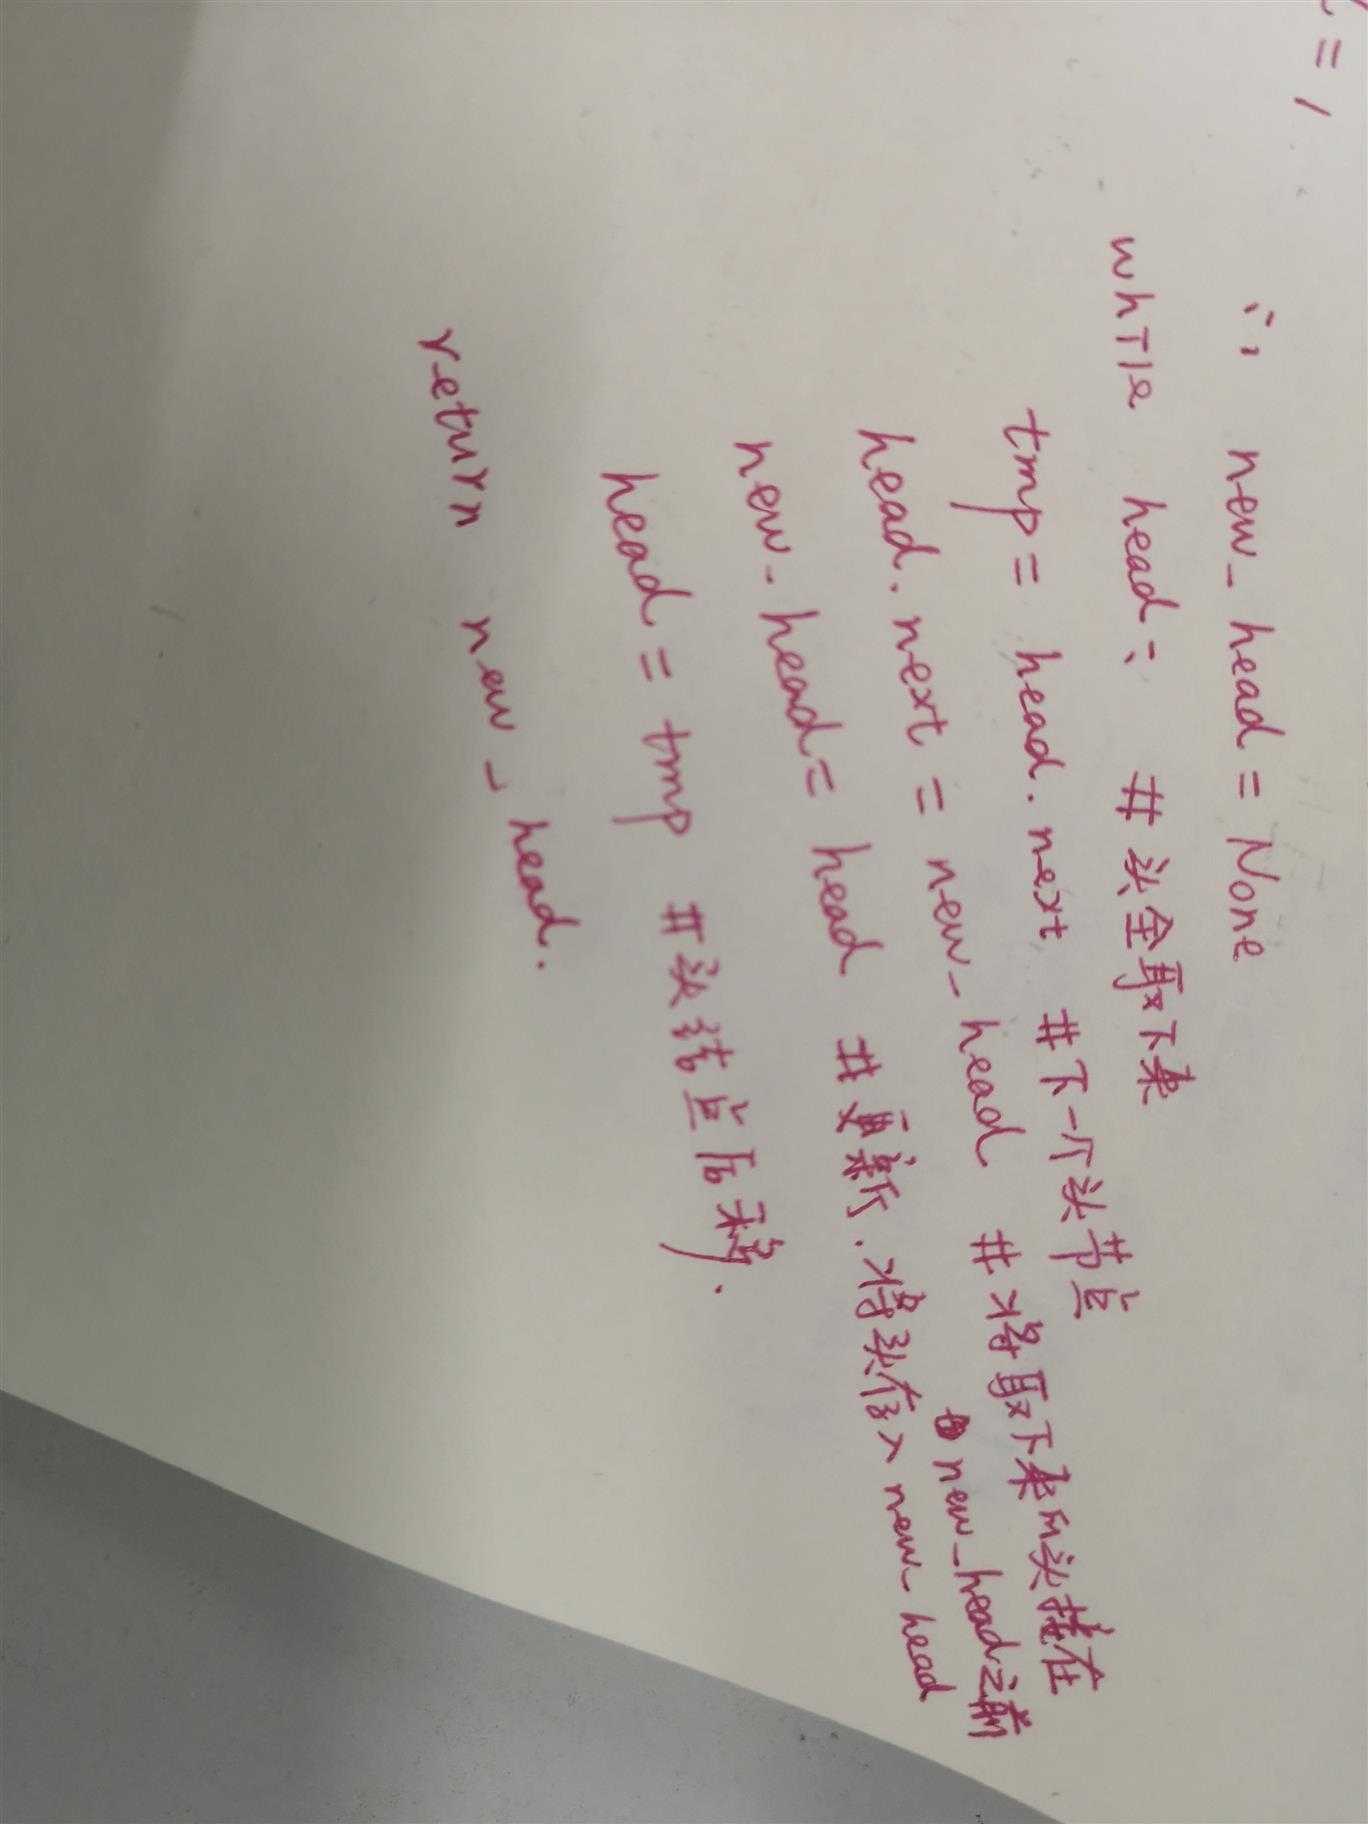 ∴ new_head = None
while head: # 头全取下来
tmp = head.next # 下一个头节点
head.next = new_head # 将取下来的头接在
new_head之前
new_head = head # 更新.将头存入new_head
head = tmp # 头结点后移.
return new_head.